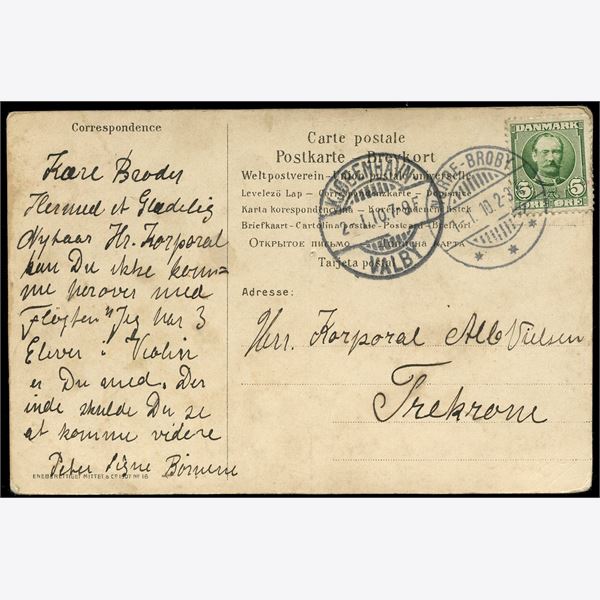 Correspondence
Kære Broder
Hermed et Glædelig
Nytaar Hr. Korporal
kan Du ikke kom=
me herover med
Fløjten Jeg har 3
Elever i Violin
er Du med. Der
inde skulde Du se
at komme videre
Peter Signe Børnene
ENEBERETTIGET MITTET & Co 1907 No 16
Carte postale
Postkarte – Brevkort
Weltpostverein – Union postale universelle
Levelezö Lap – Correspondenzkarte – Dopisnice
Karta korespondencyjna – Korespondenční lístek
Briefkaart – Cartolina postale – Postcard – Brefkort
ОТКРЫТОЕ ПИСЬМО КАРТА
Tarjeta postal
KJØBENHAVN
2.1.10. 7-9F
VALBY
E-BROBY
1.10.2-3
DANMARK
5 5
ØRE ØRE
Adresse:
Hrr. Korporal Alb Nielsen
Trekrone